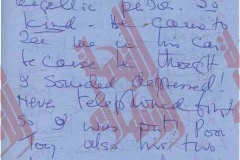 angelic person. So
kind. He came to
see me in his car
because he thought
I sounded depressed!
Never telephoned first
so I was out! Poor
Tony also his two